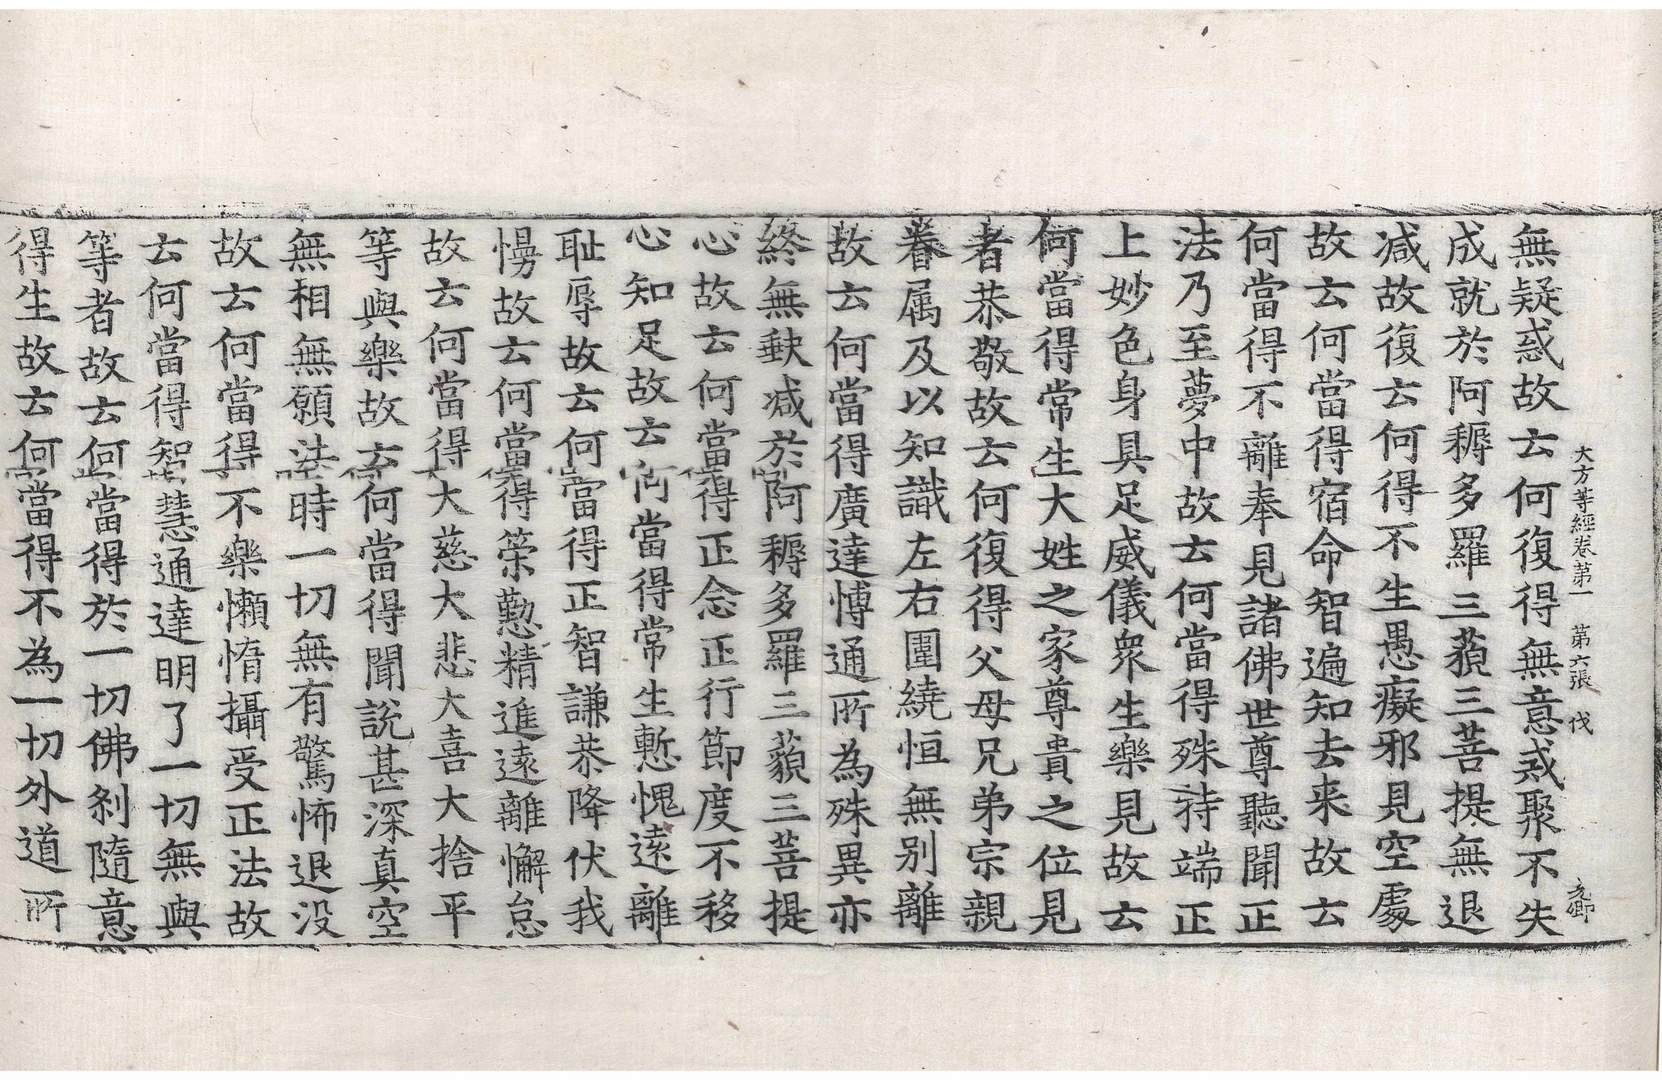 大方等經卷第一 第六張 伐
無疑惑故云何復得無意惑聚不失
成就於阿耨多羅三藐三菩提無退
减故復云何得不生愚癡邪見空處
故云何當得宿命智遍知去来故云
何當得不離奉見諸佛世尊聽聞正
法乃至夢中故云何當得殊特端正
上妙色身具足威儀衆生樂見故云
何當得常生大姓之家尊貴之位見
者恭敬故云何復得父母兄弟宗親
眷属及以知識左右圍繞恒無别離
故云何當得廣達博通所為殊異亦
終無缺减於阿耨多羅三藐三菩提
心故云何當得正念正行節度不移
心知足故云何當得常生慙愧遠離
耻辱故云何當得正智謙恭降伏我
慢故云何當得策懃精進遠離懈怠
故云何當得大慈大悲大喜大捨平
等與樂故云何當得聞說甚深真空
無相無願法時一切無有驚怖退没
故云何當得不樂懶惰攝受正法故
云何當得智慧通達明了一切無與
等者故云何當得於一切佛刹隨意
得生故云何當得不為一切外道所